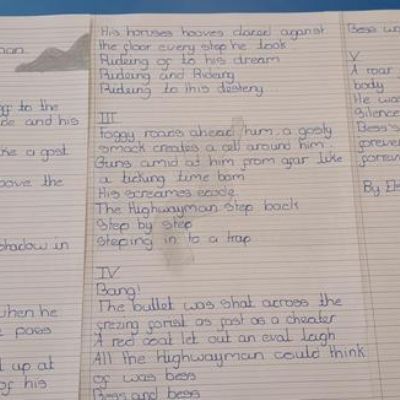 man.
to the
de and his
ke a gost
bove the
shadow in
when he
paws
l up at
of his
His horuses hooves clared against
the floor every step he took
Rideing of to his dream
Rideing and Rideing
Rideing to this desteny
III
Foggy roans ahead him, a gosty
smock creates a cell around him
Guns amid at him from afar like
a ticking time bom
His screames ecode
The Highwayman step back
Step by step
Steping in to a trap
IV
Bang!
The bullet was shat across the
frezing forist as fast as a cheater
A red coat let out an eval laugh
All the Highwayman could think
of was bess
Bess and bess
Bess wa
V
A roar
body
He was
Silence
Bess's
forever
forever
By El